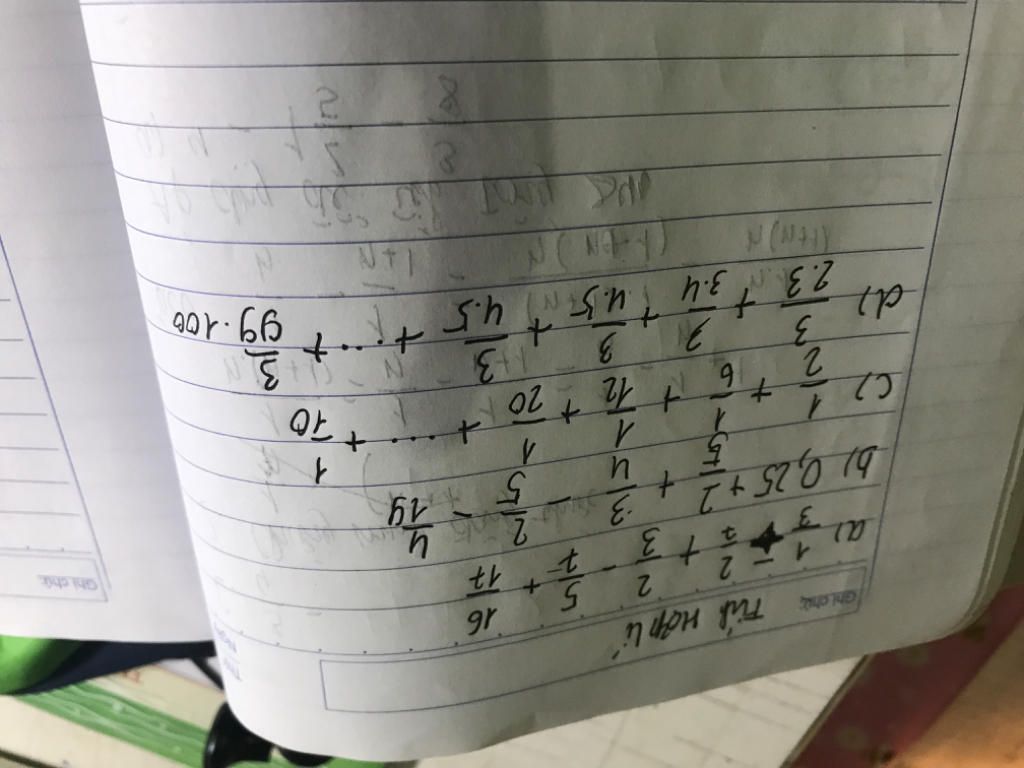 Ghi chú:
Tính Hợp lí
a) 1/3 - 2/7 + 2/3 - 5/7 + 16/17
b) 0,25 + 2/5 + 3/4 - 2/5 - 4/19
c) 1/2 + 1/6 + 1/12 + 1/20 + .... + 1/10
d) 3/2.3 + 3/3.4 + 3/4.5 + 3/4.5 + ... + 3/99.100
Ghi chú: